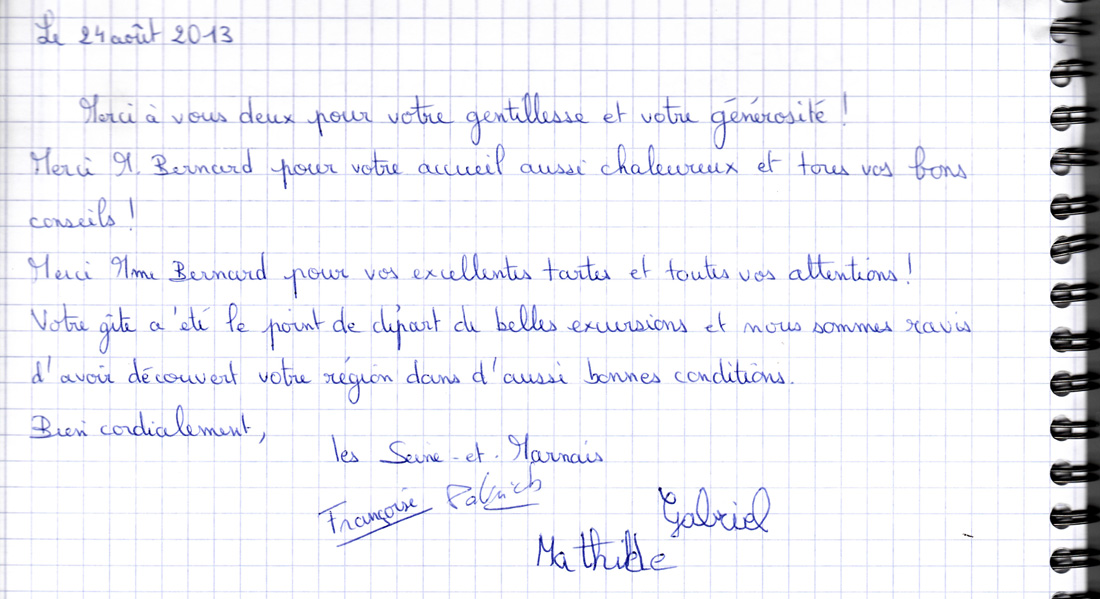 Le 24 août 2013
Merci à vous deux pour votre gentillesse et votre générosité !
Merci M. Bernard pour votre accueil aussi chaleureux et tous vos bons
conseils !
Merci Mme Bernard pour vos excellentes tartes et toutes vos attentions !
Votre gîte a été le point de départ de belles excursions et nous sommes ravis
d'avoir découvert votre région dans d'aussi bonnes conditions.
Bien cordialement,
les Seine-et-Marnais
Françoise Patrick Gabriel
Mathilde